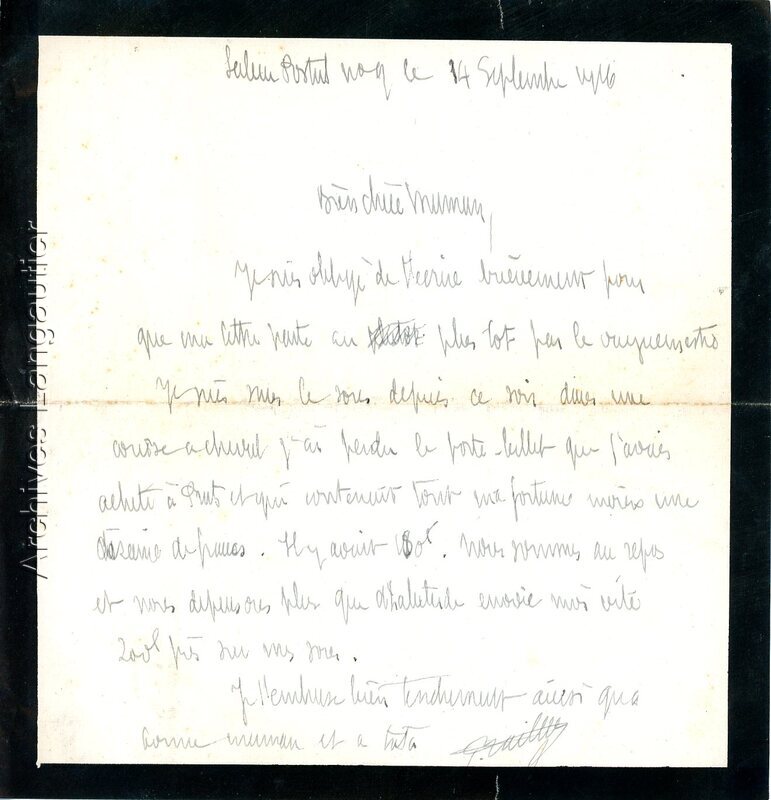 Secteur Postal no 9 le 14 Septembre 1916
Bien chère Maman,
Je suis obligé de t'ecrire brièvement pour
que ma lettre parte au plus tot par le
Je suis sans le sous depuis ce soir dans une
course a cheval j'ai perdu le porte-billet que j'avais
acheté à et qui contenait tout ma fortune moins une
dizaine de francs. Il y avait 180f. nous sommes au repos
et nous depensons plus que d'habitude envoie moi vite
200f pris sur mes sous.
Je t'embrasse bien tendrement aussi qua
bonne maman et a tata
Archives Langautier